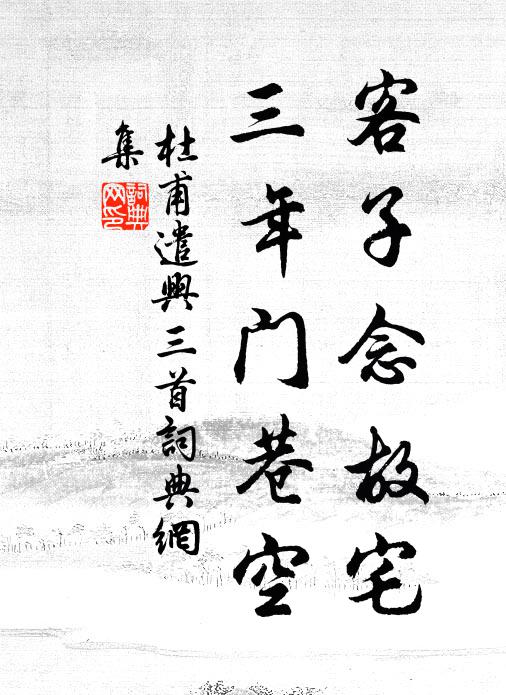 客子念故宅
三年門巷空
杜甫遣興三首詞典網
集
詞典
网印